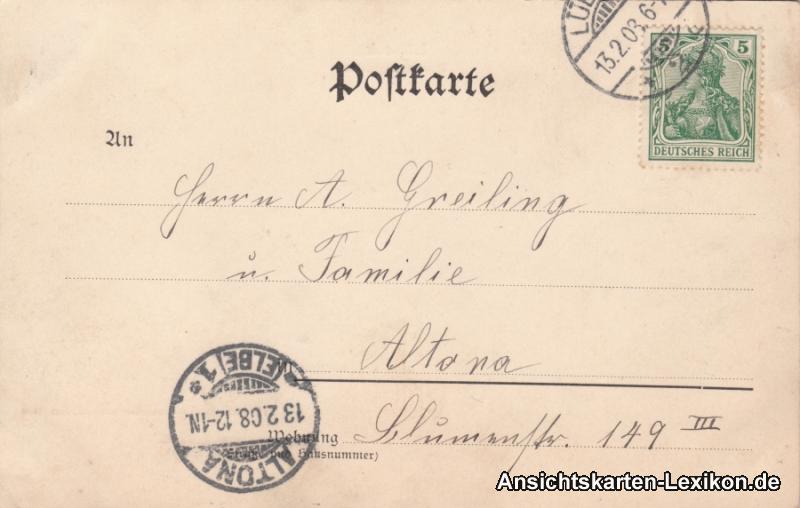 Postkarte
LÜB
13.2.08. 6-7
5 5
DEUTSCHES REICH
An
Herrn A. Greiling
u. Familie
Altona
Wohnung Blumenstr. 149 III
(Straße und Hausnummer)
ALTONA
13.2.08. 12-1N.
(ELBE) 1
*
Ansichtskarten-Lexikon.de